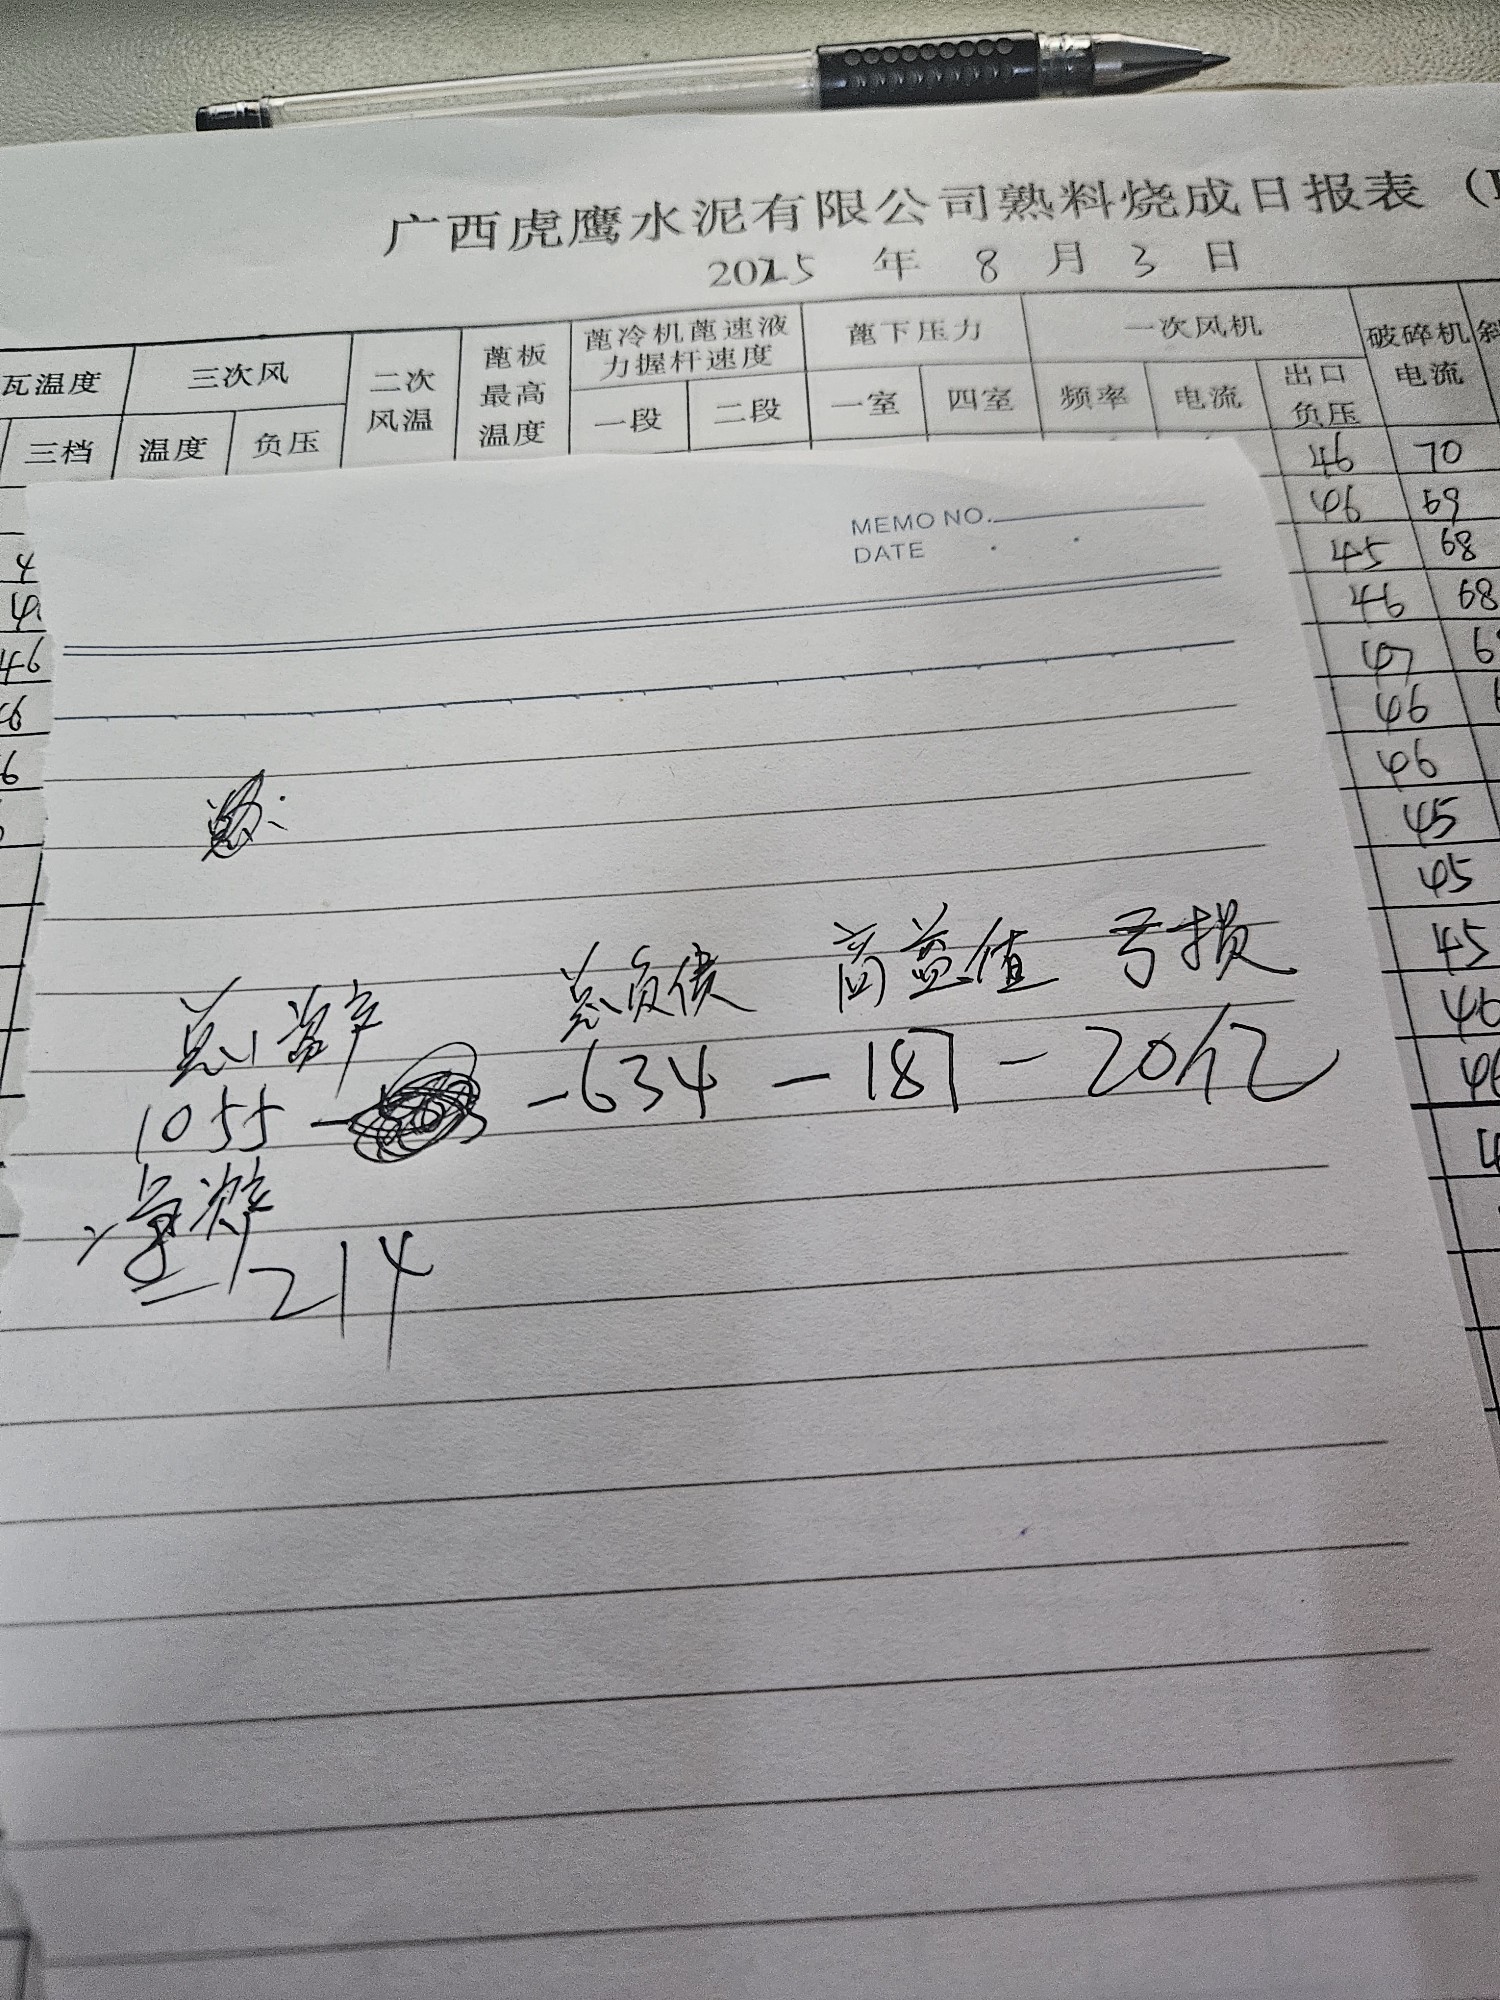 广西虎鹰水泥有限公司熟料烧成日报表（
2025 年 8 月 3 日
瓦温度 三次风 二次风温 蓖板最高温度 蓖冷机蓖速液力握杆速度 蓖下压力 一次风机 破碎机电流
三档 温度 负压 一段 二段 一室 四室 频率 电流 出口负压
46 70
46 69
45 68
46 68
47
46
46
45
45
45
46
46
MEMO NO.
DATE
总资产 总负债 商益值 亏损
1055 - -634 - 187 - 20亿
= 214